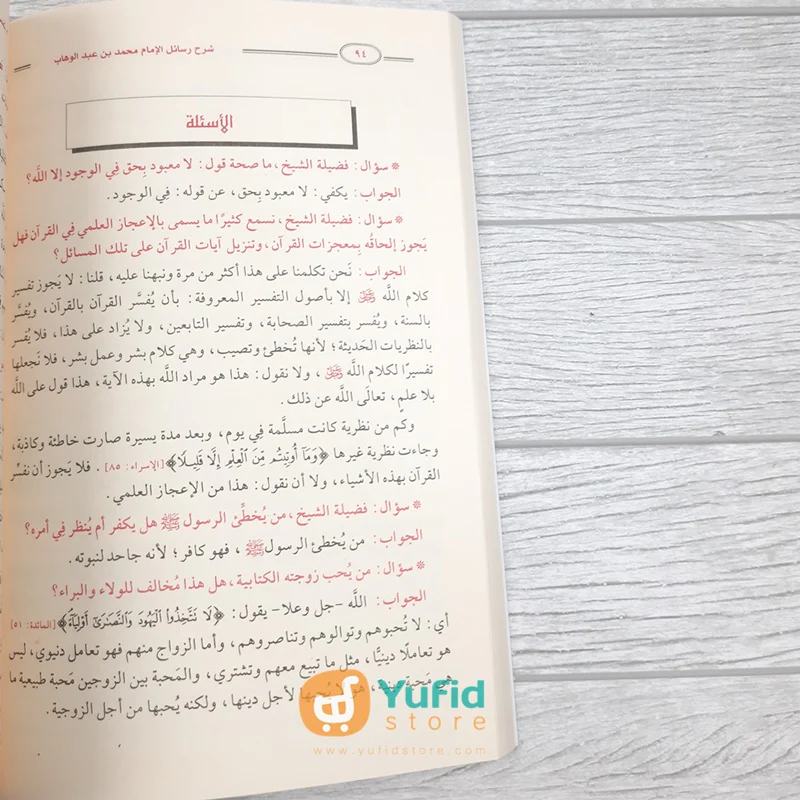 شرح رسائل الإمام محمد بن عبد الوهاب
٩٤
الأسئلة
* سؤال: فضيلة الشيخ، ما صحة قول: لا معبود بِحق فِي الوجود إلا اللَّه؟
الجواب: يكفي: لا معبود بِحق، عن قوله: فِي الوجود.
* سؤال: فضيلة الشيخ، نسمع كثيرًا ما يسمى بالإعجاز العلمي فِي القرآن فهل
يَجوز إلحاقُه بِمعجزات القرآن، وتنزيل آيات القرآن على تلك المسائل؟
الجواب: نَحن تكلمنا على هذا أكثر من مرة ونبهنا عليه، قلنا: لا يَجوز تفسير
كلام اللَّه ﷻ إلا بأصول التفسير المعروفة: بأن يُفسَّر القرآن بالقرآن، ويُفسَّر
بالسنة، ويُفسر بتفسير الصحابة، وتفسير التابعين، ولا يُزاد على هذا، فلا يُفسر
بالنظريات الحَديثة؛ لأنها تُخطئ وتصيب، وهي كلام بشر وعمل بشر، فلا نَجعلها
تفسيرًا لكلام اللَّه ﷻ، ولا نقول: هذا هو مراد اللَّه بهذه الآية، هذا قول على اللَّه
بلا علم، تعالَى اللَّه عن ذلك.
وكم من نظرية كانت مسلَّمة فِي يوم، وبعد مدة يسيرة صارت خاطئة وكاذبة،
وجاءت نظرية غيرها ﴿وَمَآ أُوتِيتُم مِّنَ ٱلْعِلْمِ إِلَّا قَلِيلًا﴾ [الإسراء: ٨٥]. فلا يَجوز أن نفسِّر
القرآن بهذه الأشياء، ولا أن نقول: هذا من الإعجاز العلمي.
* سؤال: فضيلة الشيخ، من يُخطِّئ الرسول ﷺ هل يكفر أم يُنظر فِي أمره؟
الجواب: من يُخطئ الرسول ﷺ، فهو كافر؛ لأنه جاحد لنبوته.
* سؤال: من يُحب زوجته الكتابية، هل هذا مُخالف للولاء والبراء؟
الجواب: اللَّه -جل وعلا- يقول: ﴿لَا تَتَّخِذُوا۟ ٱلْيَهُودَ وَٱلنَّصَٰرَىٰٓ أَوْلِيَآءَ﴾ [المائدة: ٥١]
أي: لا تُحبوهم وتوالوهم وتناصروهم، وأما الزواج منهم فهو تعامل دنيوي، ليس
هو تعاملًا دينيًّا، مثل ما تبيع معهم وتشتري، والمَحبة بين الزوجين مَحبة طبيعية ما
هي مَحبة دينية، هو لا يُحبها لأجل دينها، ولكنه يُحبها من أجل الزوجية.
Yufid
store
www.yufidstore.com